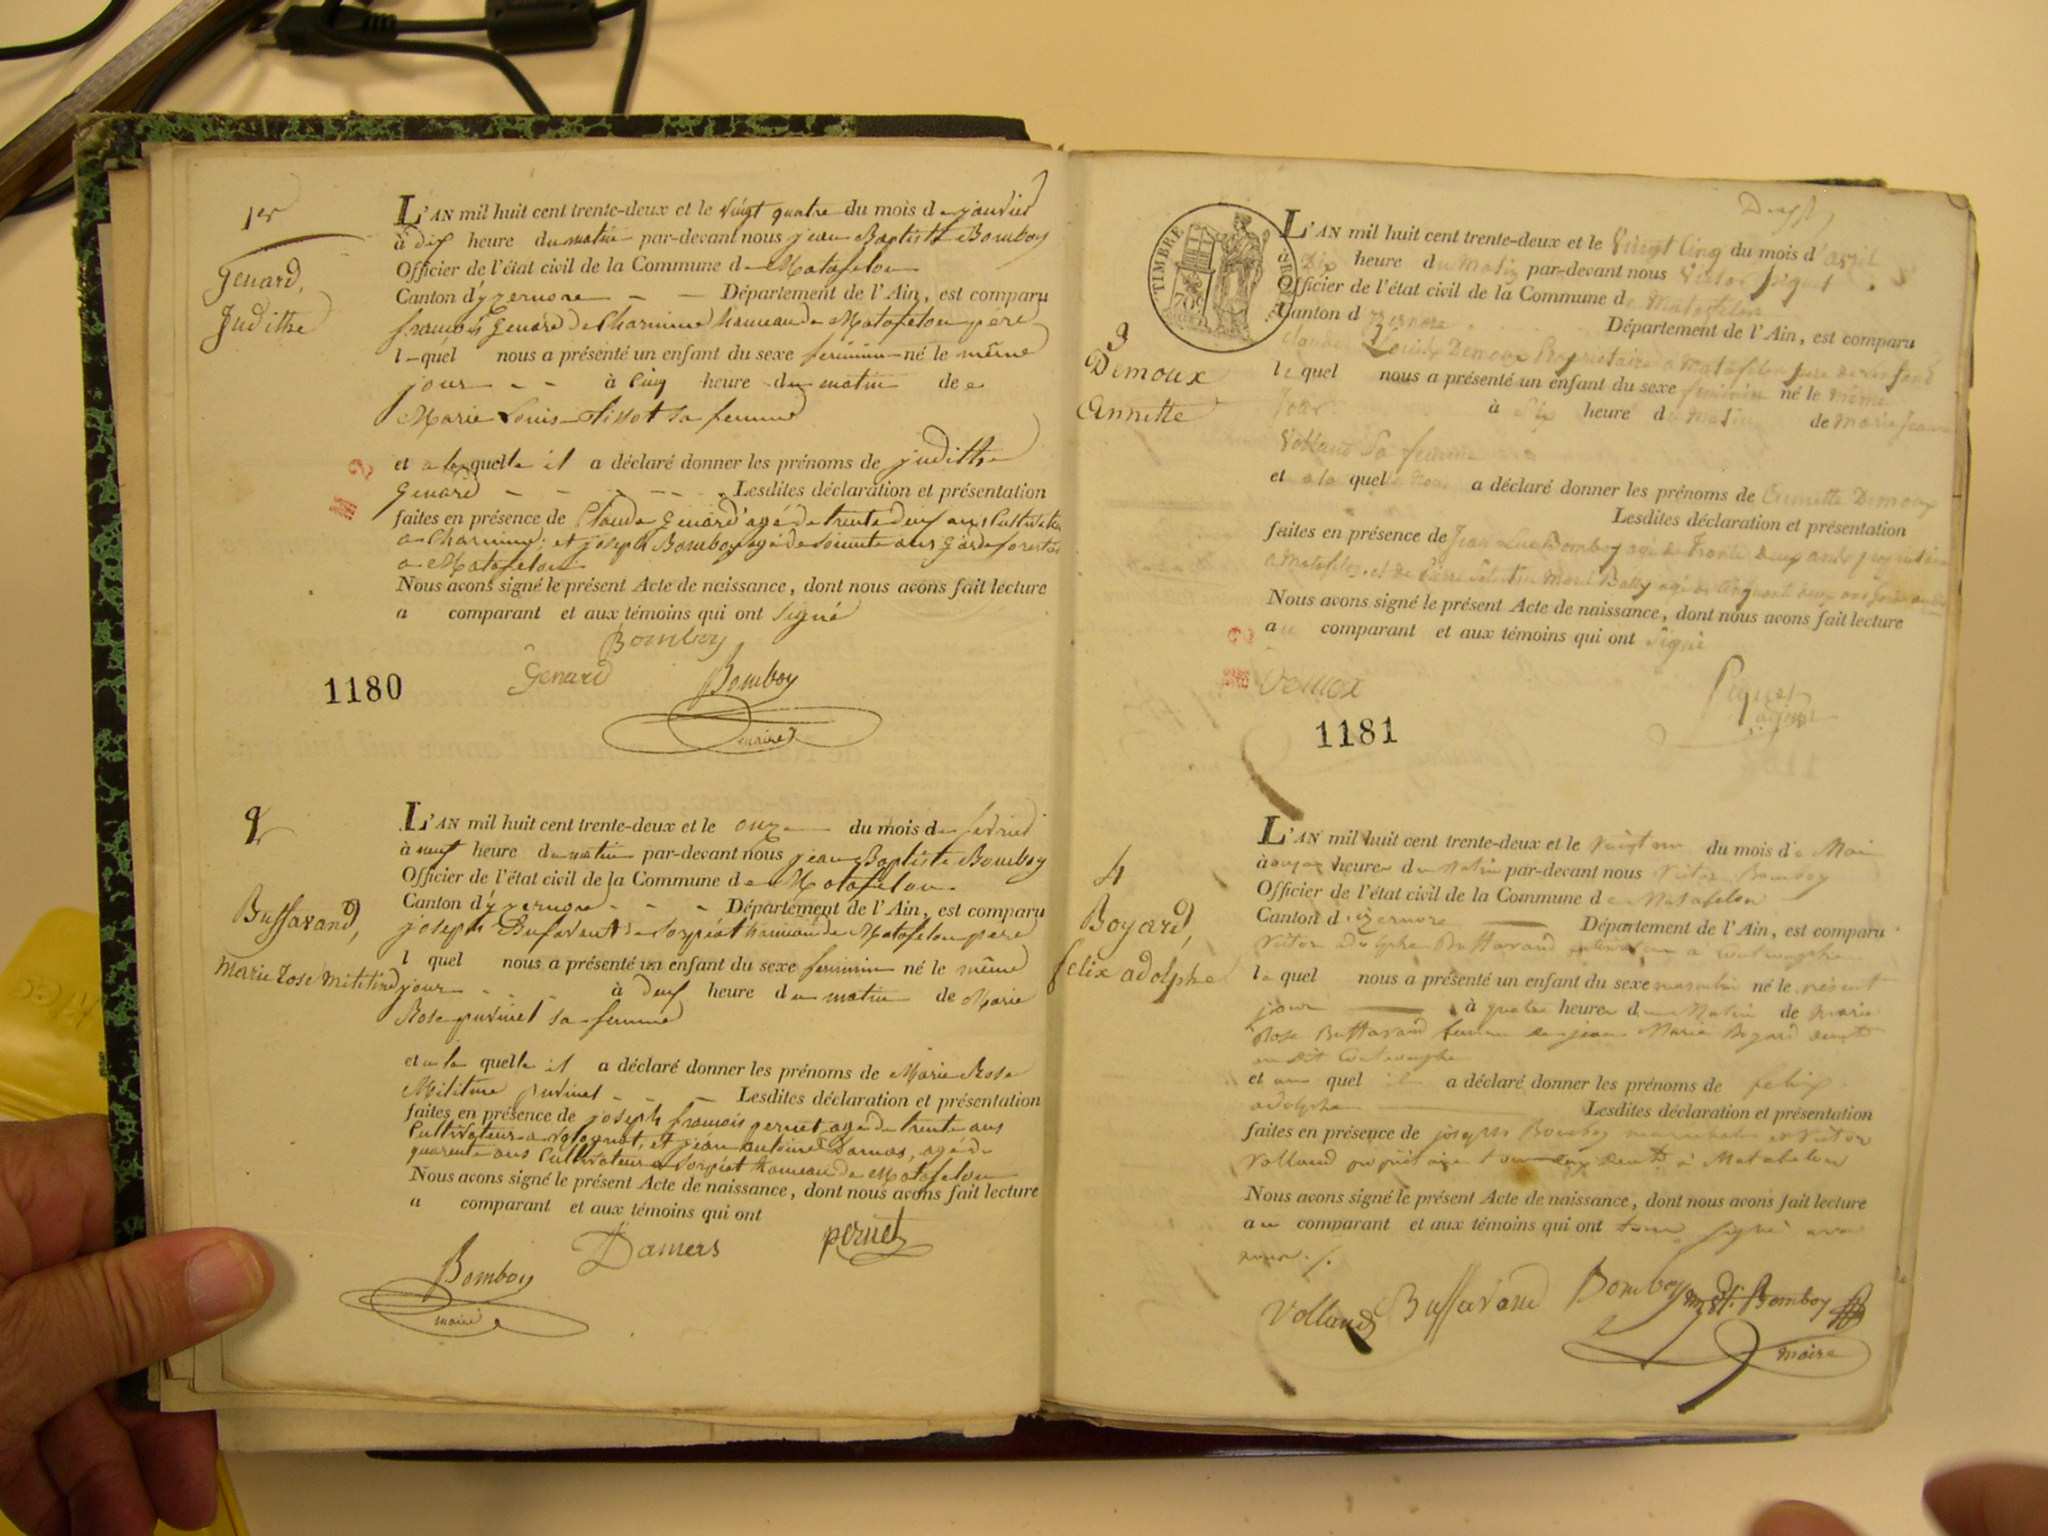 1er
Genard,
Judithe
L'AN mil huit cent trente-deux et le vingt quatre du mois de janvier
à dix heure du matin par-devant nous jean Baptiste Bomboy
Officier de l'état civil de la Commune de Matafelon
Canton d'yzernore - - Département de l'Ain, est comparu
françois Genard de Charmine hameau de Matafelon pere
lequel nous a présenté un enfant du sexe feminin né le même
jour - - à cinq heure du matin de
Marie Louis Tissot sa femme
et a laquelle il a déclaré donner les prénoms de judithe
Genard - - - - - Lesdites déclaration et présentation
faites en présence de Claude Genard agé de trente deux ans Cultivateur
a Charmine, et joseph Bomboy agé de soixante ans Garde forestier
a Matafelon
Nous avons signé le présent Acte de naissance, dont nous avons fait lecture
a comparant et aux témoins qui ont signé
Bomboy
Genard Bomboy
maire
1180
2
Buffavand,
marie rose mélitine
L'AN mil huit cent trente-deux et le onze du mois de fevrier
à neuf heure du matin par-devant nous jean Baptiste Bomboy
Officier de l'état civil de la Commune de Matafelon
Canton d'yzernore - - - Département de l'Ain, est comparu
joseph Bufavent de Corpiat hameau de Matafelon pere
l quel nous a présenté un enfant du sexe feminin né le même
jour - - à deux heure du matin de Marie
Rose sa femme
et a la quelle il a déclaré donner les prénoms de Marie Rose
- - - Lesdites déclaration et présentation
faites en présence de joseph françois pernet agé de trente ans
Cultivateur a Volognat, et jean antoine Damas, agé de
quarente ans Cultivateur a Corpiat hameau de Matafelon
Nous avons signé le présent Acte de naissance, dont nous avons fait lecture
a comparant et aux témoins qui ont
Damers pernet
Bomboy
maire
TIMBRE
3
Demoux
Annette
L'AN mil huit cent trente-deux et le vingt cinq du mois d'avril
Dix heure du Matin par-devant nous Victor Piquet
Officier de l'état civil de la Commune de Matafelon
Canton d yzernore Département de l'Ain, est comparu
Claude Louis Demoux Propriétaire a Matafelon pere de
le quel nous a présenté un enfant du sexe feminin né le même
jour à six heure du matin de marie jeanne
Volland Sa femme
et a la quel a déclaré donner les prénoms de Annette Demoux
Lesdites déclaration et présentation
faites en présence de Jean Luc Bomboy agé de Trente Deux ans proprietaire
a matafelon et de agé de cinquante deux ans
Nous avons signé le présent Acte de naissance, dont nous avons fait lecture
au comparant et aux témoins qui ont Signé
Demox Piquet
adjoint
1181
4
Boyard,
felix adolphe
L'AN mil huit cent trente-deux et le vingt un du mois de Mai
à onze heures du Matin par-devant nous Victor Bomboy
Officier de l'état civil de la Commune de Matafelon
Canton d izernore Département de l'Ain, est comparu
Victor adolphe Buffavand
le quel nous a présenté un enfant du sexe masculin né le présent
jour à quatre heures du Matin de Marie
Rose Buffavand femme de jean Marie Boyard
et au quel il a déclaré donner les prénoms de felix
adolphe Lesdites déclaration et présentation
faites en présence de joseph Bomboy et Victor
Volland propriétaire tous deux à Matafelon
Nous avons signé le présent Acte de naissance, dont nous avons fait lecture
au comparant et aux témoins qui ont tous signé avec
nous
Volland Buffavand Bomboy Bomboy
maire